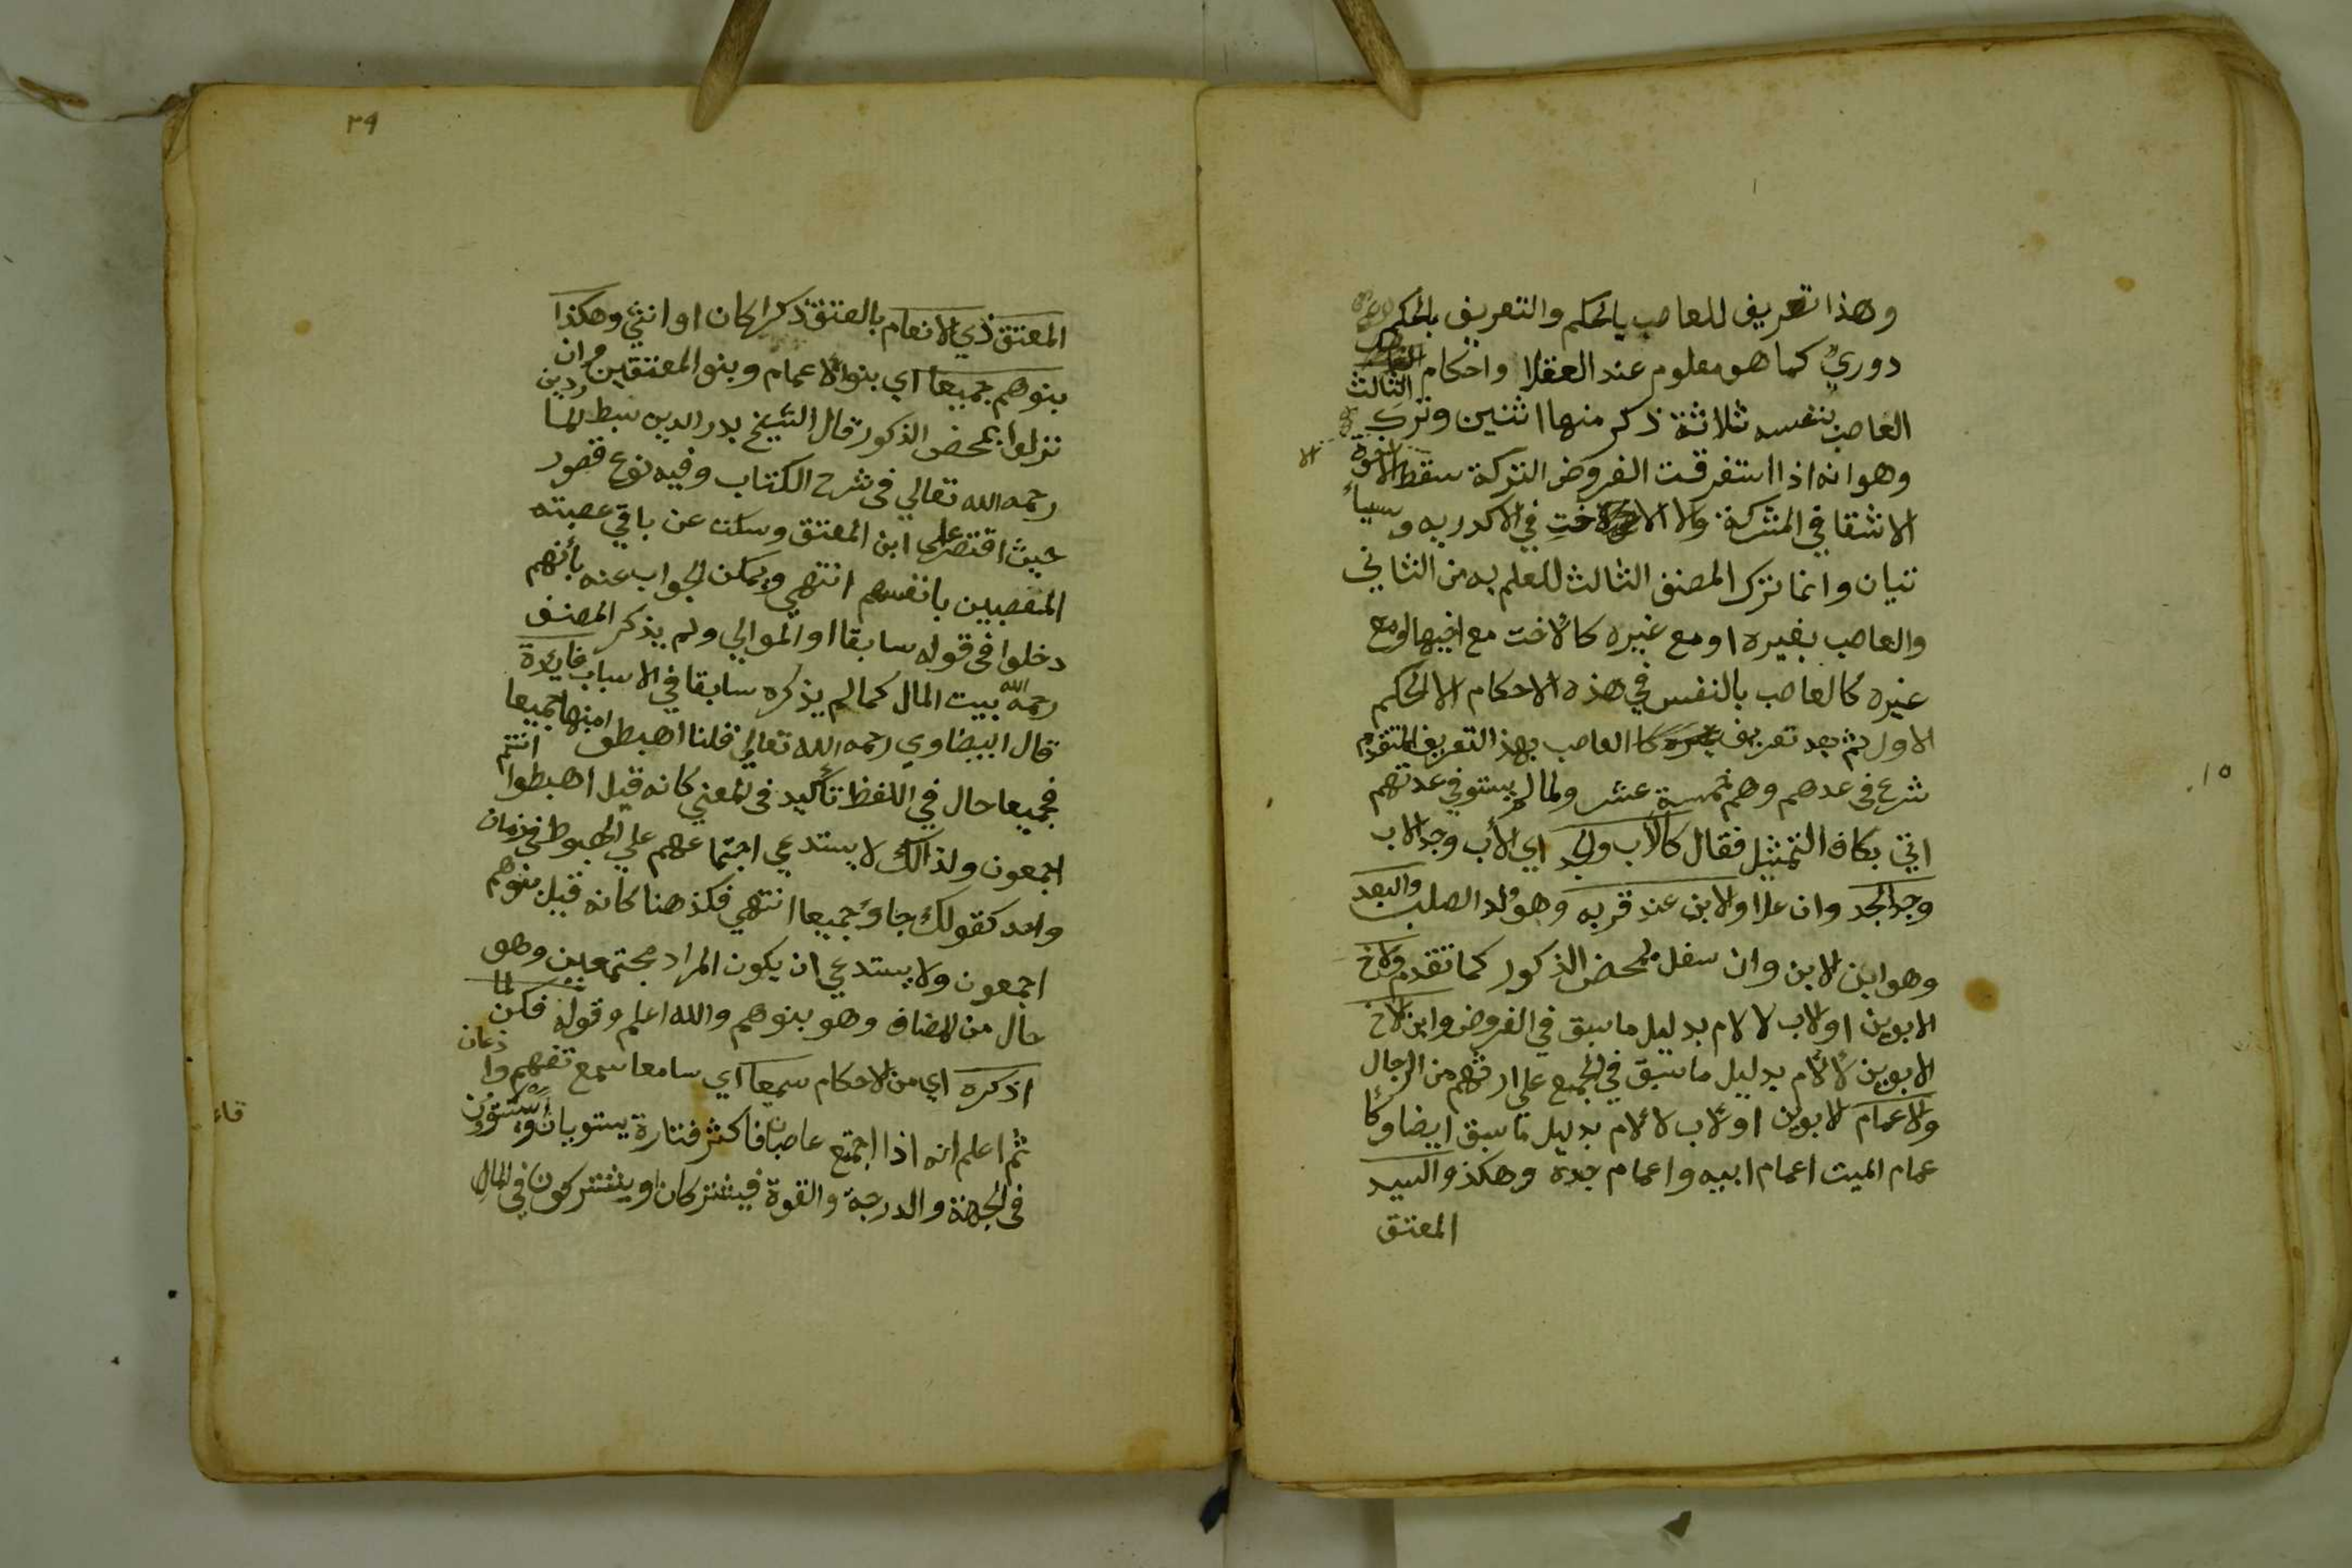 وهذا تعريف للعاصب بالحكم والتعريف بالحكم
دوري كما هو معلوم عند العقلا واحكام
العاصب بنفسه ثلاثة ذكر منها اثنين وترك الثالث
وهو انه اذا استفرقت الفروض التركة سقط الا الاخوة
الاشقا في المشركة والا الاخت في الاكدريه وسيأ
تيان وانما ترك المصنف الثالث للعلم به من الثاني
والعاصب بغيره او مع غيره كالاخت مع اخيها او مع
غيره كالعاصب بالنفس في هذه الاحكام الا الحكم
الاول ثم بعد تعريف العاصب بهذا التعريف المتقدم
شرع في عدهم وهم خمسة عشر ولما لم يستوفي عدتهم
اتي بكاف التمثيل فقال كالاب والجد اي الأب وجد الاب
وجد الجد وان علا والابن عند قربه وهو ولد الصلب والبعد
وهو ابن الابن وان سفل بمحض الذكور كما تقدم والاخ
الابوين او لاب لا لام بدليل ما سبق في الفروض وابن الاخ
الابوين لا لأم بدليل ما سبق في الجميع علي ارثهم من الرجال
والاعمام لابوين او لاب لا لام بدليل ما سبق ايضا وكا
عمام الميت اعمام ابيه واعمام جده وهكذ والسيد
المعتق
١٥
٣٩
المعتق ذي الانعام بالعتق ذكرا كان او انثي وهكذا
بنوهم جميعا اي بنو الاعمام وبنو المعتقين وان
نزلوا بمحض الذكور قال الشيخ بدر الدين سبط الما رديني
رحمه الله تعالي في شرح الكتاب وفيه نوع قصور
حيث اقتصر علي ابن المعتق وسكت عن باقي عصبته
المتعصبين بانفسهم انتهي ويمكن الجواب عنه بأنهم
دخلوا في قوله سابقا او الموالي ولم يذكر المصنف
رحمه الله بيت المال كما لم يذكره سابقا في الاسباب فايدة
قال البيضاوي رحمه الله تعالي قلنا اهبطو امنها جميعا
فجميعا حال في اللفظ تأكيد في المعني كانه قيل اهبطوا انتم
اجمعون ولذالك لا يستدعي اجتماعهم علي الهبوط في زمان
واحد كقولك جاؤ جميعا انتهي فكذ هنا كأنه قيل بنوهم
اجمعون ولا يستدعي ان يكون المراد مجتمعين وهو
حال من المضاف وهو بنوهم والله اعلم وقوله فكن لما
اذكره اي من الاحكام سميعا اي سامعا سمع تفهم وا ذعان
ثم اعلم انه اذا اجتمع عاصبان فاكثر فتارة يستويان او يستوون
في الجهة والدرجة والقوة فيشتركان او يشتركون في المال